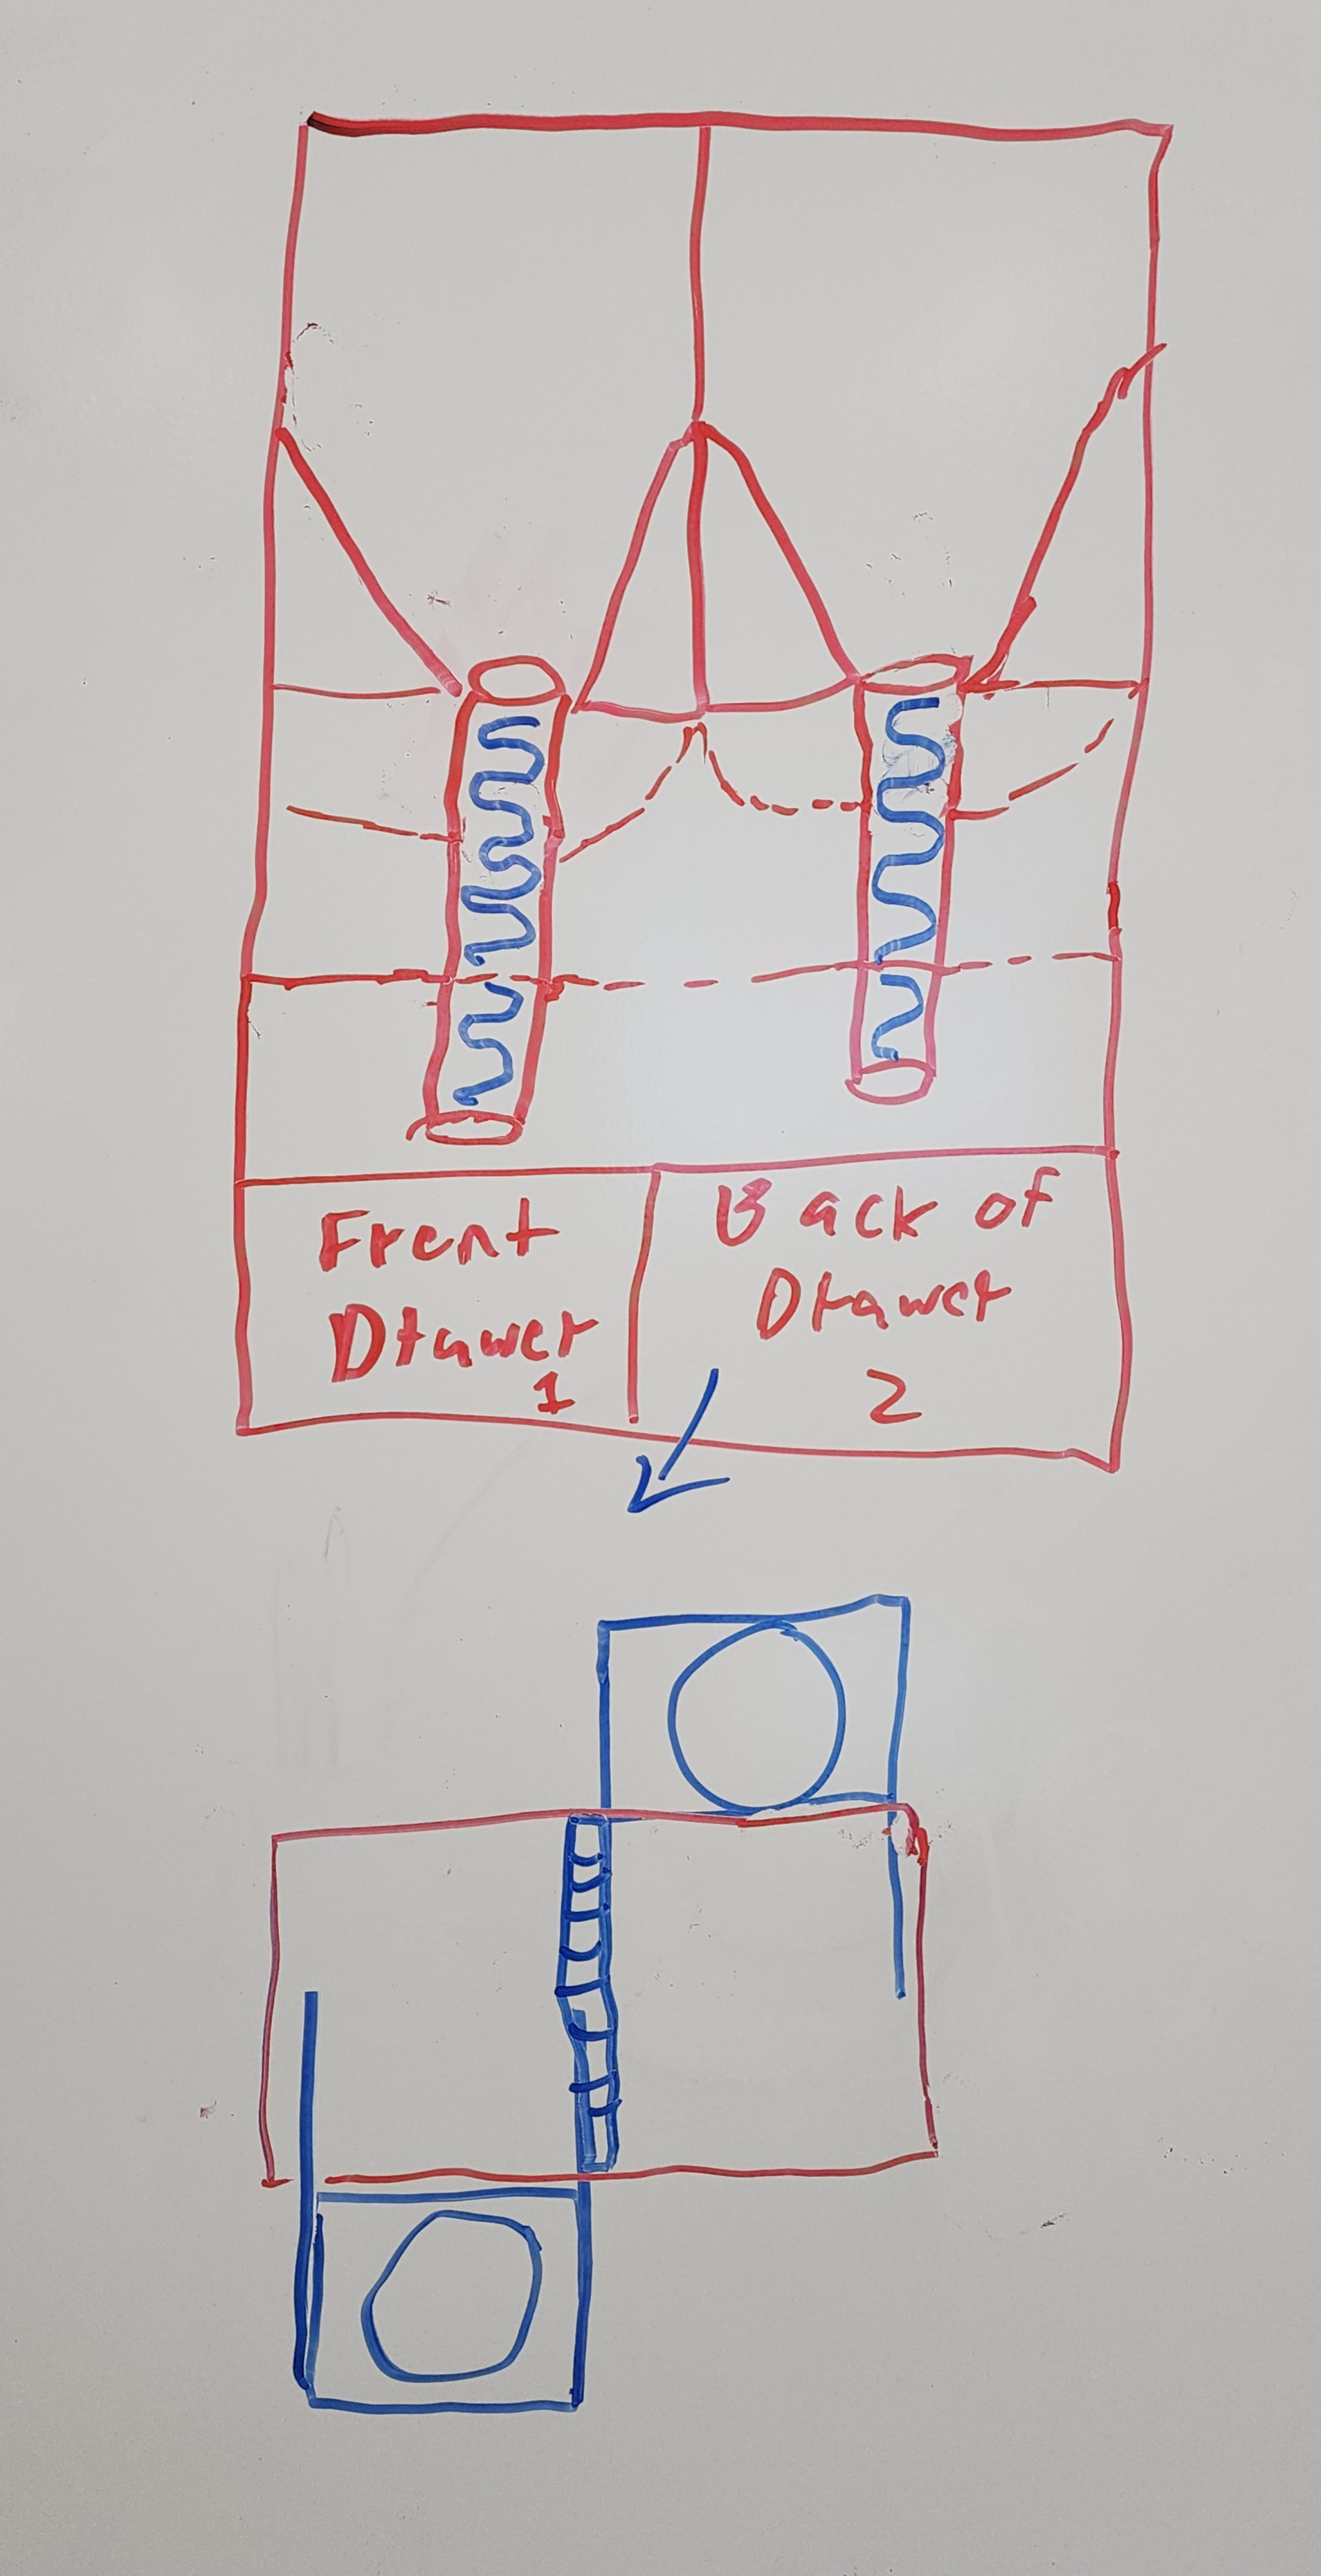 Front
Drawer
1
Back of
Drawer
2